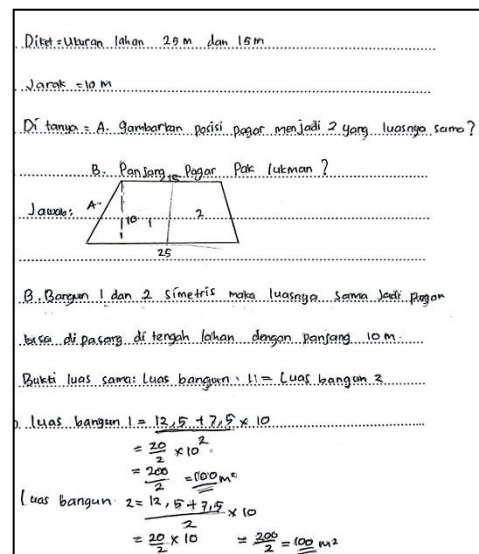 Diket = Ukuran lahan 25 m dan 15 m
Jarak = 10 m
Di tanya = A. gambarkan posisi pagar menjadi 2 yang luasnya sama?
B. Panjang Pagar Pak lukman?
Jawab: A.
15
10 1 2
25
B. Bangun 1 dan 2 simetris maka luasnya sama Jadi pagar
bisa di pasang di tengah lahan dengan panjang 10 m.
Bukti luas sama: Luas bangun L1 = Luas bangun 2
luas bangun 1 = 12,5 + 7,5 × 10
= 20/2 × 10
2
= 200/2 = 100 m²
Luas bangun 2 = (12,5 + 7,5)/2 × 10
= 20/2 × 10 = 200/2 = 100 m²